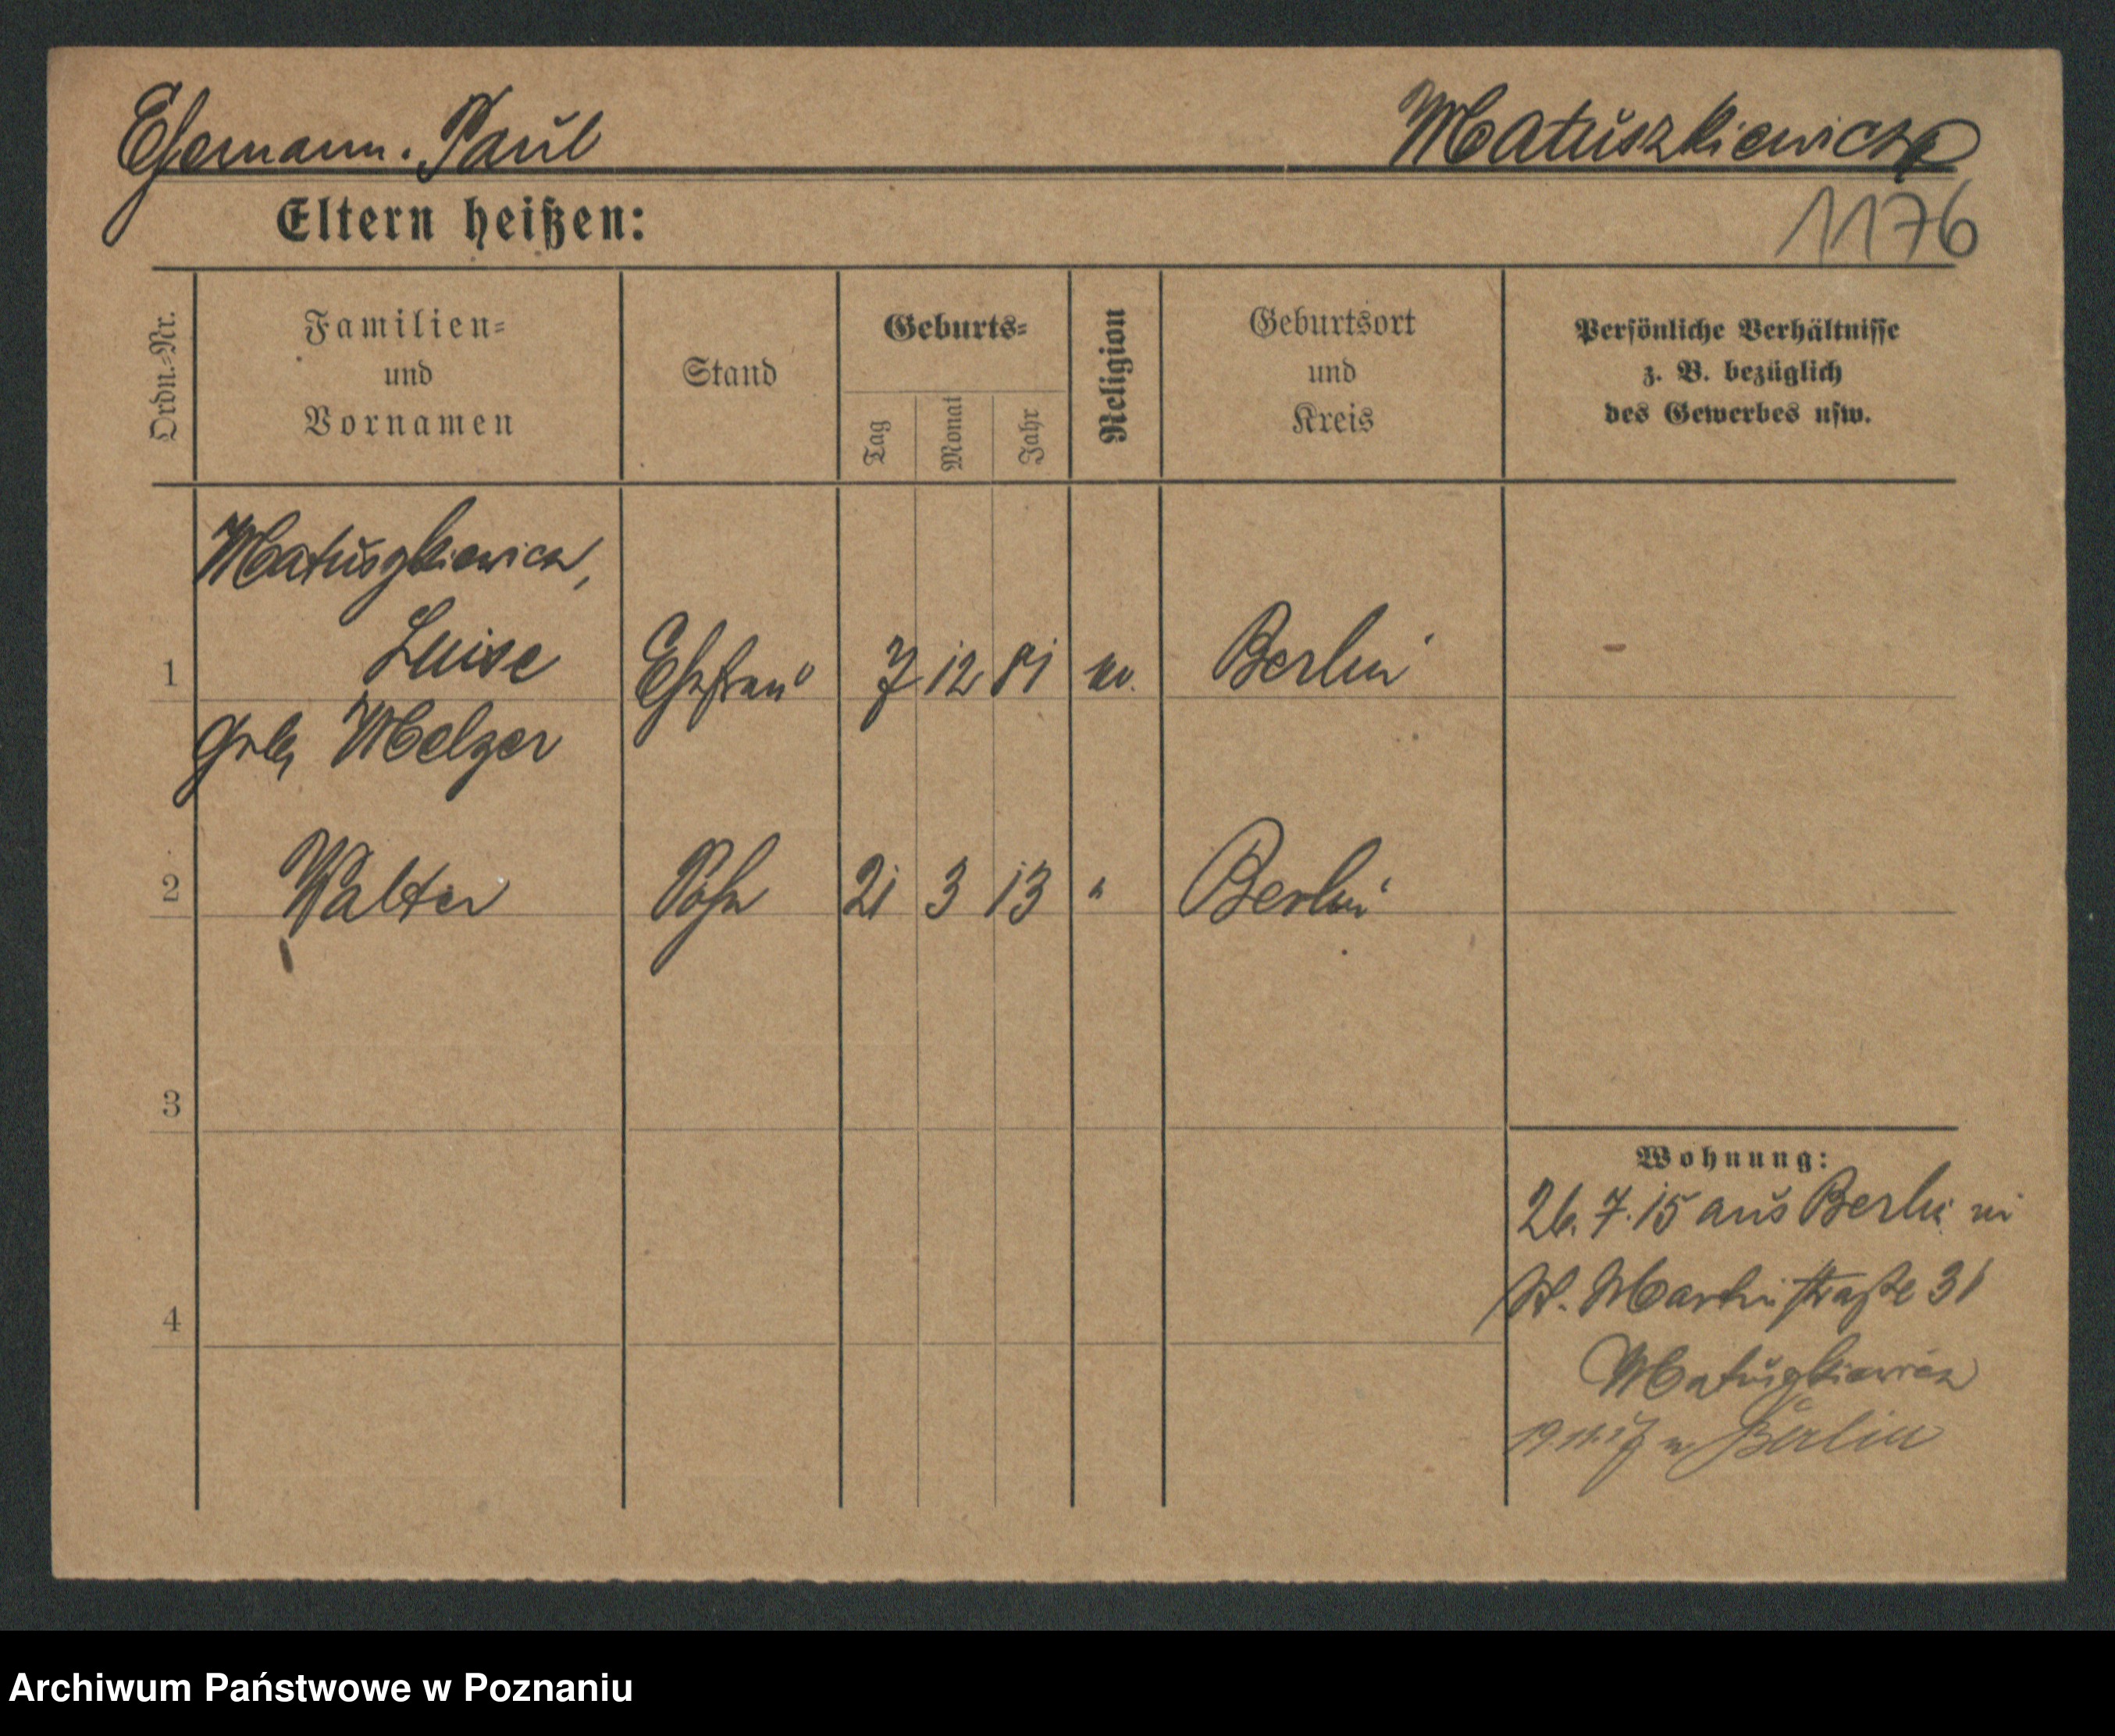 Ehemann. Paul Matuszkiewicz
Eltern heißen:
1176
Ordn.=Nr.
Familien=
und
Vornamen
Stand
Geburts=
Tag
Monat
Jahr
Religion
Geburtsort
und
Kreis
Persönliche Verhältnisse
z. B. bezüglich
des Gewerbes usw.
Matuszkiewicz,
1 Luise Ehefrau 7 12 81 ev. Berlin -
geb. Melzer
2 Walter Sohn 21 3 13 " Berlin
3
4
Wohnung:
26. 7. 15 aus Berlin in
St. Martinstraße 31
Matuszkiewicz
n. Berlin
Archiwum Państwowe w Poznaniu